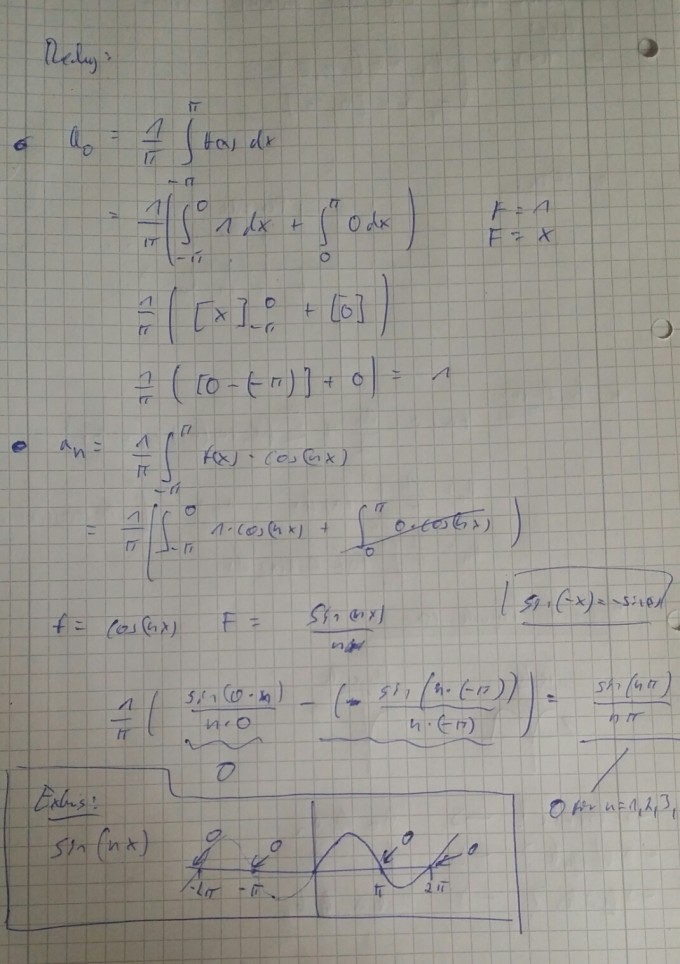 a₀ = 1/π ∫_{-π}^{π} f(x) dx
= 1/π ( ∫_{-π}^{0} 1 dx + ∫_{0}^{π} 0 dx ) F = 1
F = x
1/π ( [x]_{-π}^{0} + [0] )
1/π ( [0 - (-π)] + 0 ) = 1
aₙ = 1/π ∫_{-π}^{π} f(x) · cos(nx)
= 1/π ( ∫_{-π}^{0} 1 · cos(nx) + ∫_{0}^{π} 0 · cos(nx) )
sin(-x) = -sin(x)
f = cos(nx) F = sin(nx)/n
1/π ( sin(0·n)/(n·0) - (- sin(n·(-π))/(n·(-π)) ) = sin(nπ)/(nπ)
0
0 für n=1,2,3,
sin(nx)
0 0 0 0
-2π -π π 2π